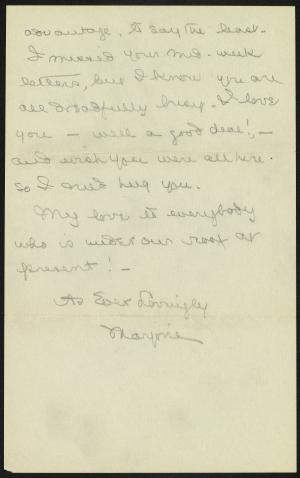 advantage, to say the least.
I missed your mid-week
letters, but I know you are
all dreadfully busy. I love
you – well a good deal!, –
and wish you were all here
so I could hug you.
My love to everybody
who is under our roof at
present! –
As Ever Lovingly
Marjorie